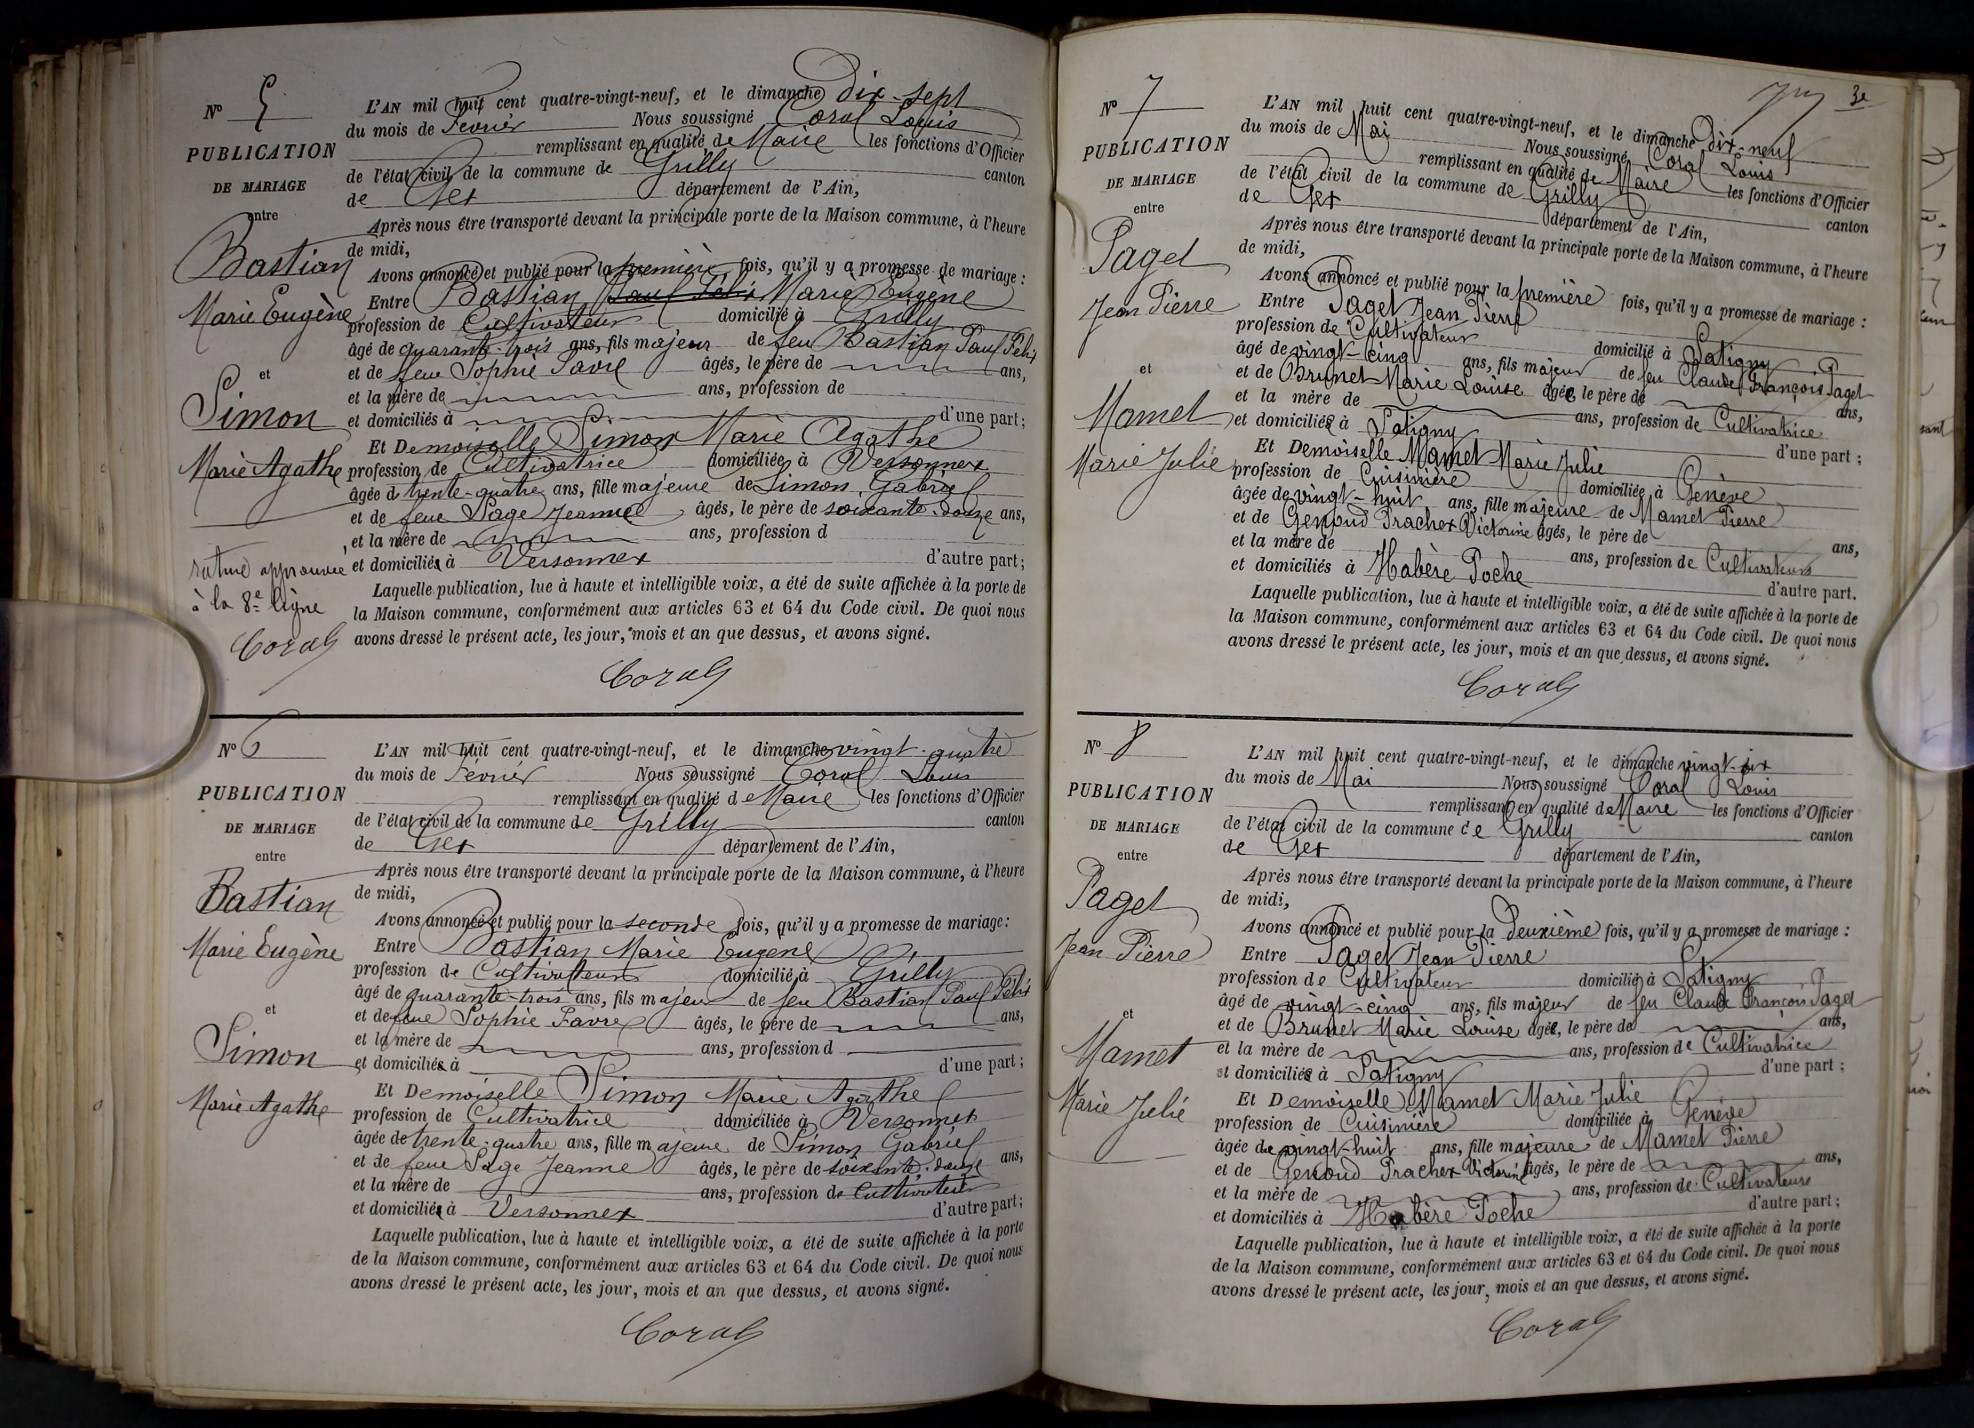 N° 5
PUBLICATION
DE MARIAGE
entre
Bastian
Marie Eugène
et
Simon
Marie Agathe
rature approuvée
à la 8e ligne
Coral
L'AN mil huit cent quatre-vingt-neuf, et le dimanche dix-sept
du mois de Février Nous soussigné Coral Louis
remplissant en qualité de Maire les fonctions d'Officier
de l'état civil de la commune de Grilly canton
de Gex département de l'Ain,
Après nous être transporté devant la principale porte de la Maison commune, à l'heure
de midi,
Avons annoncé et publié pour la première fois, qu'il y a promesse de mariage :
Entre Bastian Paul Félix Marie Eugène
profession de Cultivateur domicilié à Grilly
âgé de quarante-trois ans, fils majeur de feu Bastian Paul Félix
et de feue Sophie Favre âgés, le père de ans,
et la mère de ans, profession de
et domiciliés à d'une part ;
Et Demoiselle Simon Marie Agathe
profession de Cultivatrice domiciliée à Versonnex
âgée de trente-quatre ans, fille majeure de Simon Gabriel
et de feue Page Jeanne âgés, le père de soixante-douze ans,
et la mère de ans, profession d
et domiciliés à Versonnex d'autre part ;
Laquelle publication, lue à haute et intelligible voix, a été de suite affichée à la porte de
la Maison commune, conformément aux articles 63 et 64 du Code civil. De quoi nous
avons dressé le présent acte, les jour, mois et an que dessus, et avons signé.
Coral
N° 6
PUBLICATION
DE MARIAGE
entre
Bastian
Marie Eugène
et
Simon
Marie Agathe
L'AN mil huit cent quatre-vingt-neuf, et le dimanche vingt-quatre
du mois de Février Nous soussigné Coral Louis
remplissant en qualité de Maire les fonctions d'Officier
de l'état civil de la commune de Grilly canton
de Gex département de l'Ain,
Après nous être transporté devant la principale porte de la Maison commune, à l'heure
de midi,
Avons annoncé et publié pour la seconde fois, qu'il y a promesse de mariage :
Entre Bastian Marie Eugène
profession de Cultivateur domicilié à Grilly
âgé de quarante-trois ans, fils majeur de feu Bastian Paul Félix
et de feue Sophie Favre âgés, le père de ans,
et la mère de ans, profession d
et domiciliés à d'une part ;
Et Demoiselle Simon Marie Agathe
profession de Cultivatrice domiciliée à Versonnex
âgée de trente-quatre ans, fille majeure de Simon Gabriel
et de feue Page Jeanne âgés, le père de soixante-douze ans,
et la mère de ans, profession de Cultivateur
et domiciliés à Versonnex d'autre part ;
Laquelle publication, lue à haute et intelligible voix, a été de suite affichée à la porte
de la Maison commune, conformément aux articles 63 et 64 du Code civil. De quoi nous
avons dressé le présent acte, les jour, mois et an que dessus, et avons signé.
Coral
3e
N° 7
PUBLICATION
DE MARIAGE
entre
Paget
Jean Pierre
et
Mamet
Marie Julie
L'AN mil huit cent quatre-vingt-neuf, et le dimanche dix-neuf
du mois de Mai Nous soussigné Coral Louis
remplissant en qualité de Maire les fonctions d'Officier
de l'état civil de la commune de Grilly canton
de Gex département de l'Ain,
Après nous être transporté devant la principale porte de la Maison commune, à l'heure
de midi,
Avons annoncé et publié pour la première fois, qu'il y a promesse de mariage :
Entre Paget Jean Pierre
profession de Cultivateur domicilié à Satigny
âgé de vingt-cinq ans, fils majeur de feu Claude François Paget
et de Brunet Marie Louise âgée le père de ans,
et la mère de ans, profession de Cultivatrice
et domiciliée à Satigny d'une part ;
Et Demoiselle Mamet Marie Julie
profession de Cuisinière domiciliée à Genève
âgée de vingt-huit ans, fille majeure de Mamet Pierre
et de Genoud Prachex Victorine âgés, le père de ans,
et la mère de ans, profession de Cultivateurs
et domiciliés à Habère Poche d'autre part.
Laquelle publication, lue à haute et intelligible voix, a été de suite affichée à la porte de
la Maison commune, conformément aux articles 63 et 64 du Code civil. De quoi nous
avons dressé le présent acte, les jour, mois et an que dessus, et avons signé.
Coral
N° 8
PUBLICATION
DE MARIAGE
entre
Paget
Jean Pierre
et
Mamet
Marie Julie
L'AN mil huit cent quatre-vingt-neuf, et le dimanche vingt-six
du mois de Mai Nous soussigné Coral Louis
remplissant en qualité de Maire les fonctions d'Officier
de l'état civil de la commune de Grilly canton
de Gex département de l'Ain,
Après nous être transporté devant la principale porte de la Maison commune, à l'heure
de midi,
Avons annoncé et publié pour la Deuxième fois, qu'il y a promesse de mariage :
Entre Paget Jean Pierre
profession de Cultivateur domicilié à Satigny
âgé de vingt-cinq ans, fils majeur de feu Claude François Paget
et de Brunet Marie Louise âgée, le père de ans,
et la mère de ans, profession de Cultivatrice
et domiciliée à Satigny d'une part ;
Et Demoiselle Mamet Marie Julie
profession de Cuisinière domiciliée à Genève
âgée de vingt-huit ans, fille majeure de Mamet Pierre
et de Genoud Prachex Victorine âgés, le père de ans,
et la mère de ans, profession de Cultivateurs
et domiciliés à Habère Poche d'autre part ;
Laquelle publication, lue à haute et intelligible voix, a été de suite affichée à la porte
de la Maison commune, conformément aux articles 63 et 64 du Code civil. De quoi nous
avons dressé le présent acte, les jour, mois et an que dessus, et avons signé.
Coral